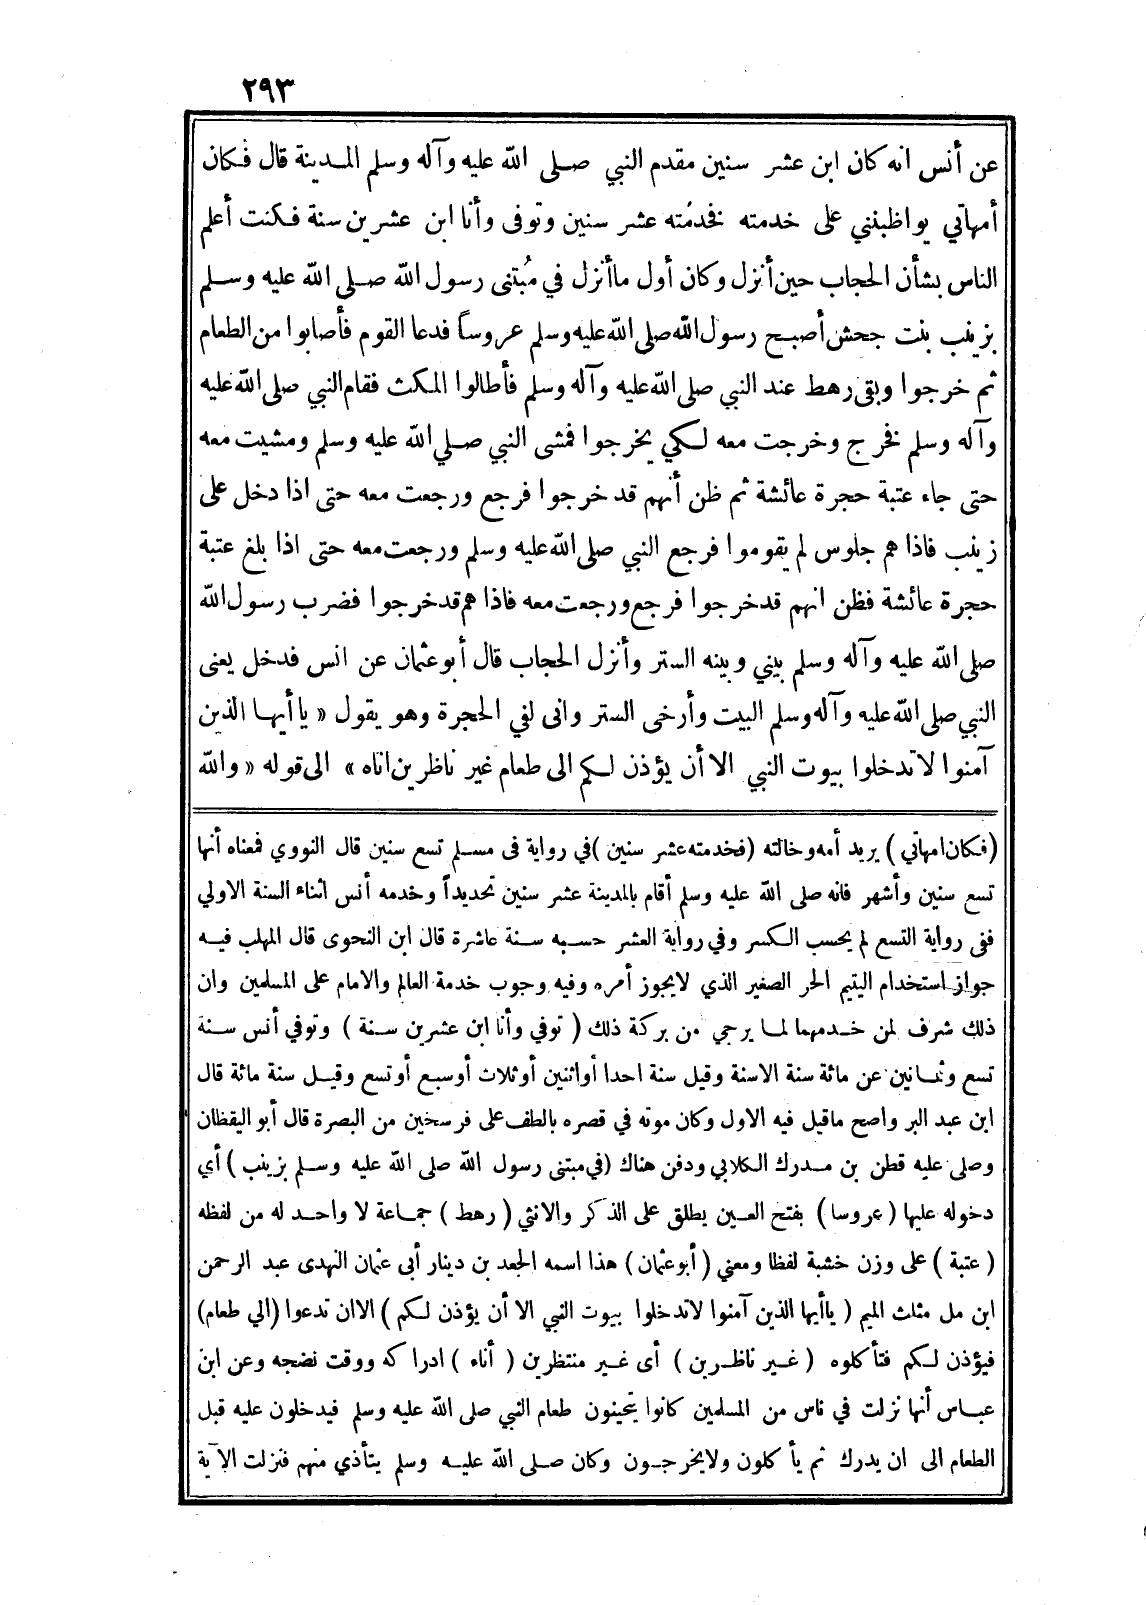 ٢٩٣
عن أنس انه كان ابن عشر سنين مقدم النبي صلى الله عليه وآله وسلم المدينة قال فكان
أمهاتي يواظبنني على خدمته فخدمته عشر سنين وتوفى وأنا ابن عشرين سنة فكنت أعلم
الناس بشأن الحجاب حين أنزل وكان أول ما أنزل في مُبتنى رسول الله صلى الله عليه وسلم
بزينب بنت جحش أصبح رسول الله صلى الله عليه وسلم عروساً فدعا القوم فأصابوا من الطعام
ثم خرجوا وبقى رهط عند النبي صلى الله عليه وآله وسلم فأطالوا المكث فقام النبي صلى الله عليه
وآله وسلم فخرج وخرجت معه لكي يخرجوا فمشى النبي صلى الله عليه وسلم ومشيت معه
حتى جاء عتبة حجرة عائشة ثم ظن أنهم قد خرجوا فرجع ورجعت معه حتى اذا دخل على
زينب فاذا هم جلوس لم يقوموا فرجع النبي صلى الله عليه وسلم ورجعت معه حتى اذا بلغ عتبة
حجرة عائشة فظن انهم قد خرجوا فرجع ورجعت معه فاذا هم قد خرجوا فضرب رسول الله
صلى الله عليه وآله وسلم بيني وبينه الستر وأنزل الحجاب قال أبو عثمان عن انس فدخل يعنى
النبي صلى الله عليه وآله وسلم البيت وأرخى الستر وانى لفي الحجرة وهو يقول « ياأيها الذين
آمنوا لا تدخلوا بيوت النبي الا أن يؤذن لكم الى طعام غير ناظرين اناه » الى قوله « والله
(فكان امهاتي) يريد أمه وخالته (فخدمته عشر سنين) في رواية فى مسلم تسع سنين قال النووي فمعناه أنها
تسع سنين وأشهر فانه صلى الله عليه وسلم أقام بالمدينة عشر سنين تحديداً وخدمه أنس اثناء السنة الاولي
ففى رواية التسع لم يحسب الكسر وفي رواية العشر حسبه سنة عاشرة قال ابن النحوى قال المهلب فيه
جواز استخدام اليتيم الحر الصغير الذي لايجوز أمره وفيه وجوب خدمة العالم والامام على المسلمين وان
ذلك شرف لمن خدمهما لما يرجي من بركة ذلك ( توفي وأنا ابن عشرين سنة ) وتوفي أنس سنة
تسع وثمانين عن مائة سنة الاسنة وقيل سنة احدا أواثنين أوثلاث أوسبع أوتسع وقيل سنة مائة قال
ابن عبد البر واصح ماقيل فيه الاول وكان موته في قصره بالطف على فرسخين من البصرة قال أبو اليقظان
وصلى عليه قطن بن مدرك الكلابي ودفن هناك (في مبتنى رسول الله صلى الله عليه وسلم بزينب ) أي
دخوله عليها ( عروسا ) بفتح العين يطلق على الذكر والانثي ( رهط ) جماعة لا واحد له من لفظه
( عتبة ) على وزن خشبة لفظا ومعني ( أبو عثمان ) هذا اسمه الجعد بن دينار أبى عثمان النهدى عبد الرحمن
ابن مل مثلث الميم ( ياأيها الذين آمنوا لاتدخلوا بيوت النبي الا أن يؤذن لكم ) الاان تدعوا (الي طعام)
فيؤذن لكم فتأكلوه ( غير ناظرين ) أى غير منتظرين ( أناء ) ادراكه ووقت نضجه وعن ابن
عباس أنها نزلت في ناس من المسلمين كانوا يتحينون طعام النبي صلى الله عليه وسلم فيدخلون عليه قبل
الطعام الى ان يدرك ثم يأكلون ولايخرجون وكان صلى الله عليه وسلم يتأذي منهم فنزلت الآية